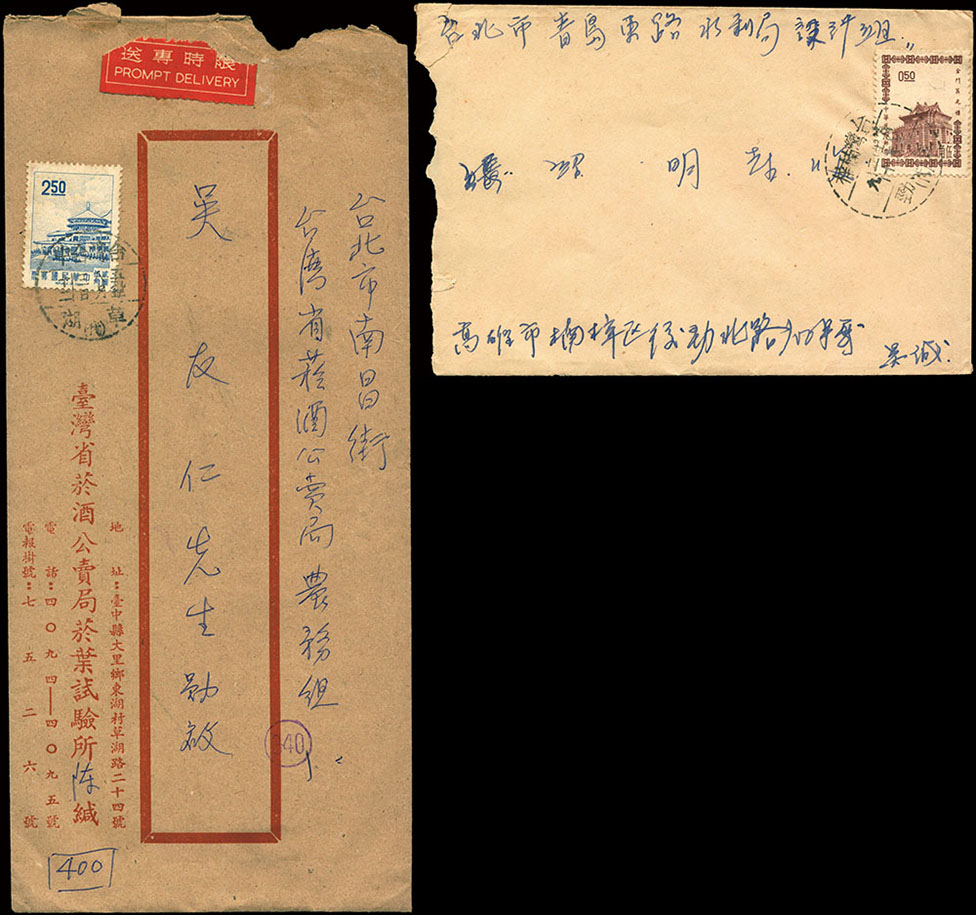 限時專送
PROMPT DELIVERY
2.50
台北市南昌街
台灣省菸酒公賣局農務組
吴友仁先生勛啟
地址：臺中縣大里鄉東湖村草湖路二十四號
臺灣省菸酒公賣局菸葉試驗所陈緘
電話：四〇九四—四〇九五號
電報掛號：七五二六號
340
400
台北市青島東路水利局設計組
0.50
明
高雄市楠梓区後勁北路
吴缄